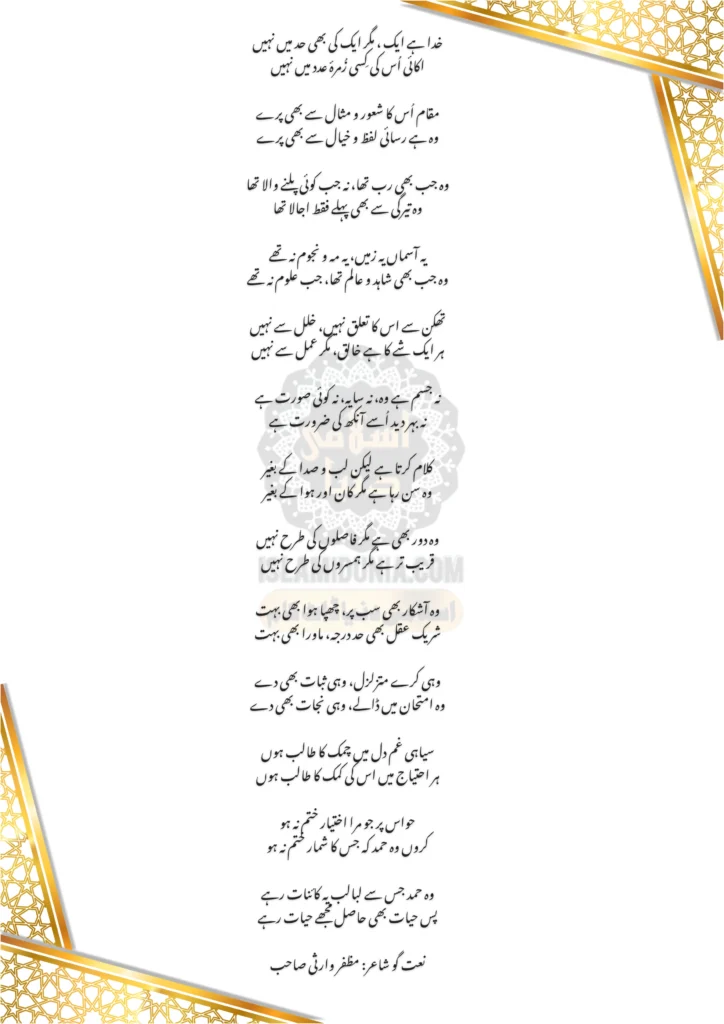 خدا ہے ایک ، مگر ایک کی بھی حد میں نہیں
اکائی اُس کی کِسی زُمرۂ عدد میں نہیں
مقام اُس کا شعور و مثال سے بھی پرے
وہ ہے رسائی لفظ و خیال سے بھی پرے
وہ جب بھی رب تھا، نہ جب کوئی پلنے والا تھا
وہ تیرگی سے بھی پہلے فقط اجالا تھا
یہ آسماں یہ زمیں، یہ مہ و نجوم نہ تھے
وہ جب بھی شاہد و عالم تھا، جب علوم نہ تھے
تھکن سے اس کا تعلق نہیں، خلل سے نہیں
ہر ایک شے کا ہے خالق، مگر عمل سے نہیں
نہ جسم ہے وہ، نہ سایہ، نہ کوئی صورت ہے
نہ بہر دید اُسے آنکھ کی ضرورت ہے
کلام کرتا ہے لیکن لب و صدا کے بغیر
وہ سن رہا ہے مگر کان اور ہوا کے بغیر
وہ دور بھی ہے مگر فاصلوں کی طرح نہیں
قریب تر ہے مگر ہمسروں کی طرح نہیں
ISLAMIDUNIA.COM
وہ آشکار بھی سب پر، چھپا ہوا بھی بہت
شریک عقل بھی حد درجہ، ماورا بھی بہت
وہی کرے متزلزل، وہی ثبات بھی دے
وہ امتحان میں ڈالے، وہی نجات بھی دے
سیاہی غم دل میں چمک کا طالب ہوں
ہر احتیاج میں اس کی کمک کا طالب ہوں
حواس پر جو مرا اختیار ختم نہ ہو
کروں وہ حمد کہ جس کا شمار ختم نہ ہو
وہ حمد جس سے لبالب یہ کائنات رہے
پس حیات بھی حاصل مجھے حیات رہے
نعت گو شاعر: مظفر وارثی صاحب